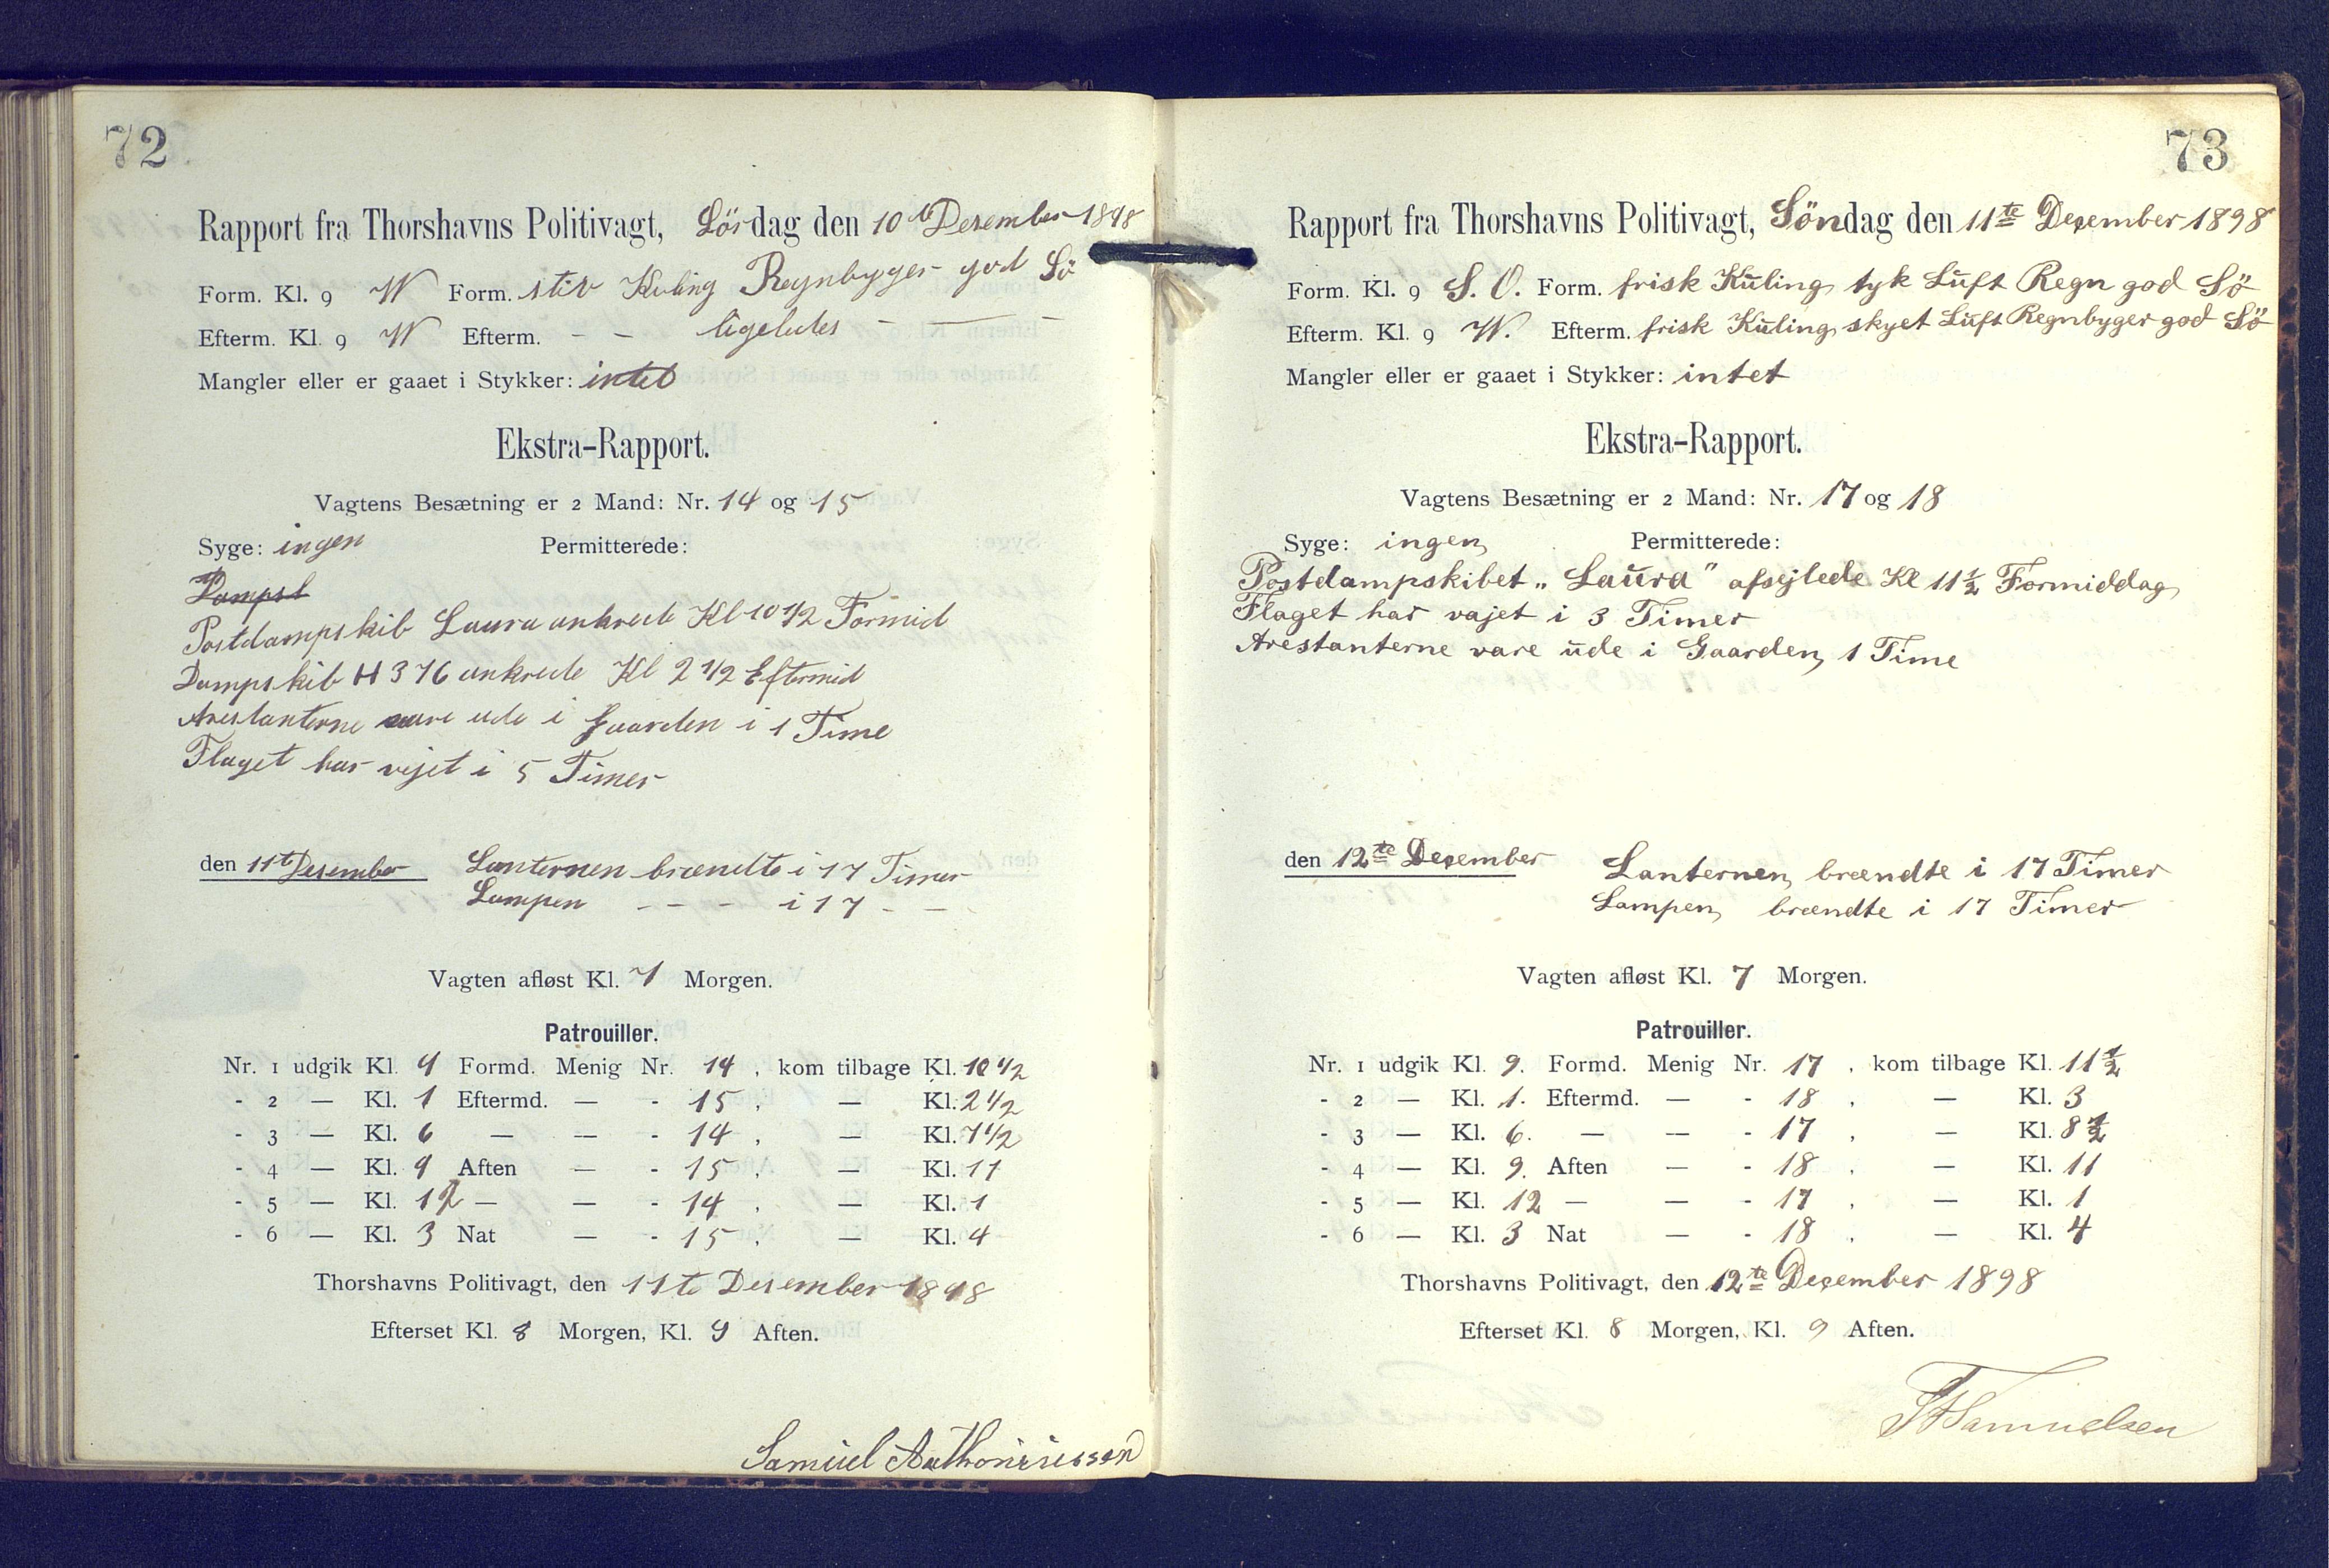 72
Rapport fra Thorshavns Politivagt, Lördag den 10de Desember 1898
Form. Kl. 9 W Form. stiv Kuling Regnbyger god Sö
Efterm. Kl. 9 W Efterm. - - ligeledes - — -
Mangler eller er gaaet i Stykker: intet
Ekstra-Rapport.
Vagtens Besætning er 2 Mand: Nr. 14 og 15
Syge: ingen Permitterede:
Dampsk
Postdampskib Laura ankrede Kl 10 1/2 Formid
Dampskib H 376 ankrede Kl 2 1/2 Eftermid
Arestanterne vare ude i Gaarden i 1 Time
Flaget har vejet i 5 Timer
den 11te Desember Lanternen brændte i 17 Timer
Lampen - - - i 17 - -
Vagten afløst Kl. 7 Morgen.
Patrouiller.
Nr. 1 udgik Kl. 9 Formd. Menig Nr. 14, kom tilbage Kl. 10 1/2
- 2 — Kl. 1 Eftermd. — - 15, — Kl. 2 1/2
- 3 — Kl. 6 — — - 14, — Kl. 7 1/2
- 4 — Kl. 9 Aften — - 15, — Kl. 11
- 5 — Kl. 12 — — - 14, — Kl. 1
- 6 — Kl. 3 Nat — - 15, — Kl. 4
Thorshavns Politivagt, den 11te Desember 1898
Efterset Kl. 8 Morgen, Kl. 9 Aften.
Samuel Anthoniussen
73
Rapport fra Thorshavns Politivagt, Söndag den 11te Desember 1898
Form. Kl. 9 S. O. Form. frisk Kuling tyk Luft Regn god Sö
Efterm. Kl. 9 W. Efterm. frisk Kuling skyet Luft Regnbyger god Sö
Mangler eller er gaaet i Stykker: intet
Ekstra-Rapport.
Vagtens Besætning er 2 Mand: Nr. 17 og 18
Syge: ingen Permitterede:
Postdampskibet „Laura" afsejlede Kl 11 1/2 Formiddag
Flaget har vajet i 3 Timer
Arestanterne vare ude i Gaarden 1 Time
den 12te Desember Lanternen brændte i 17 Timer
Lampen brændte i 17 Timer
Vagten afløst Kl. 7 Morgen.
Patrouiller.
Nr. 1 udgik Kl. 9. Formd. Menig Nr. 17, kom tilbage Kl. 11 1/2
- 2 — Kl. 1. Eftermd. — - 18, — Kl. 3
- 3 — Kl. 6. — — - 17, — Kl. 8 1/2
- 4 — Kl. 9. Aften — - 18, — Kl. 11
- 5 — Kl. 12 — — - 17, — Kl. 1
- 6 — Kl. 3 Nat — - 18, — Kl. 4
Thorshavns Politivagt, den 12te Desember 1898
Efterset Kl. 8 Morgen, Kl. 9 Aften.
Samuelsen